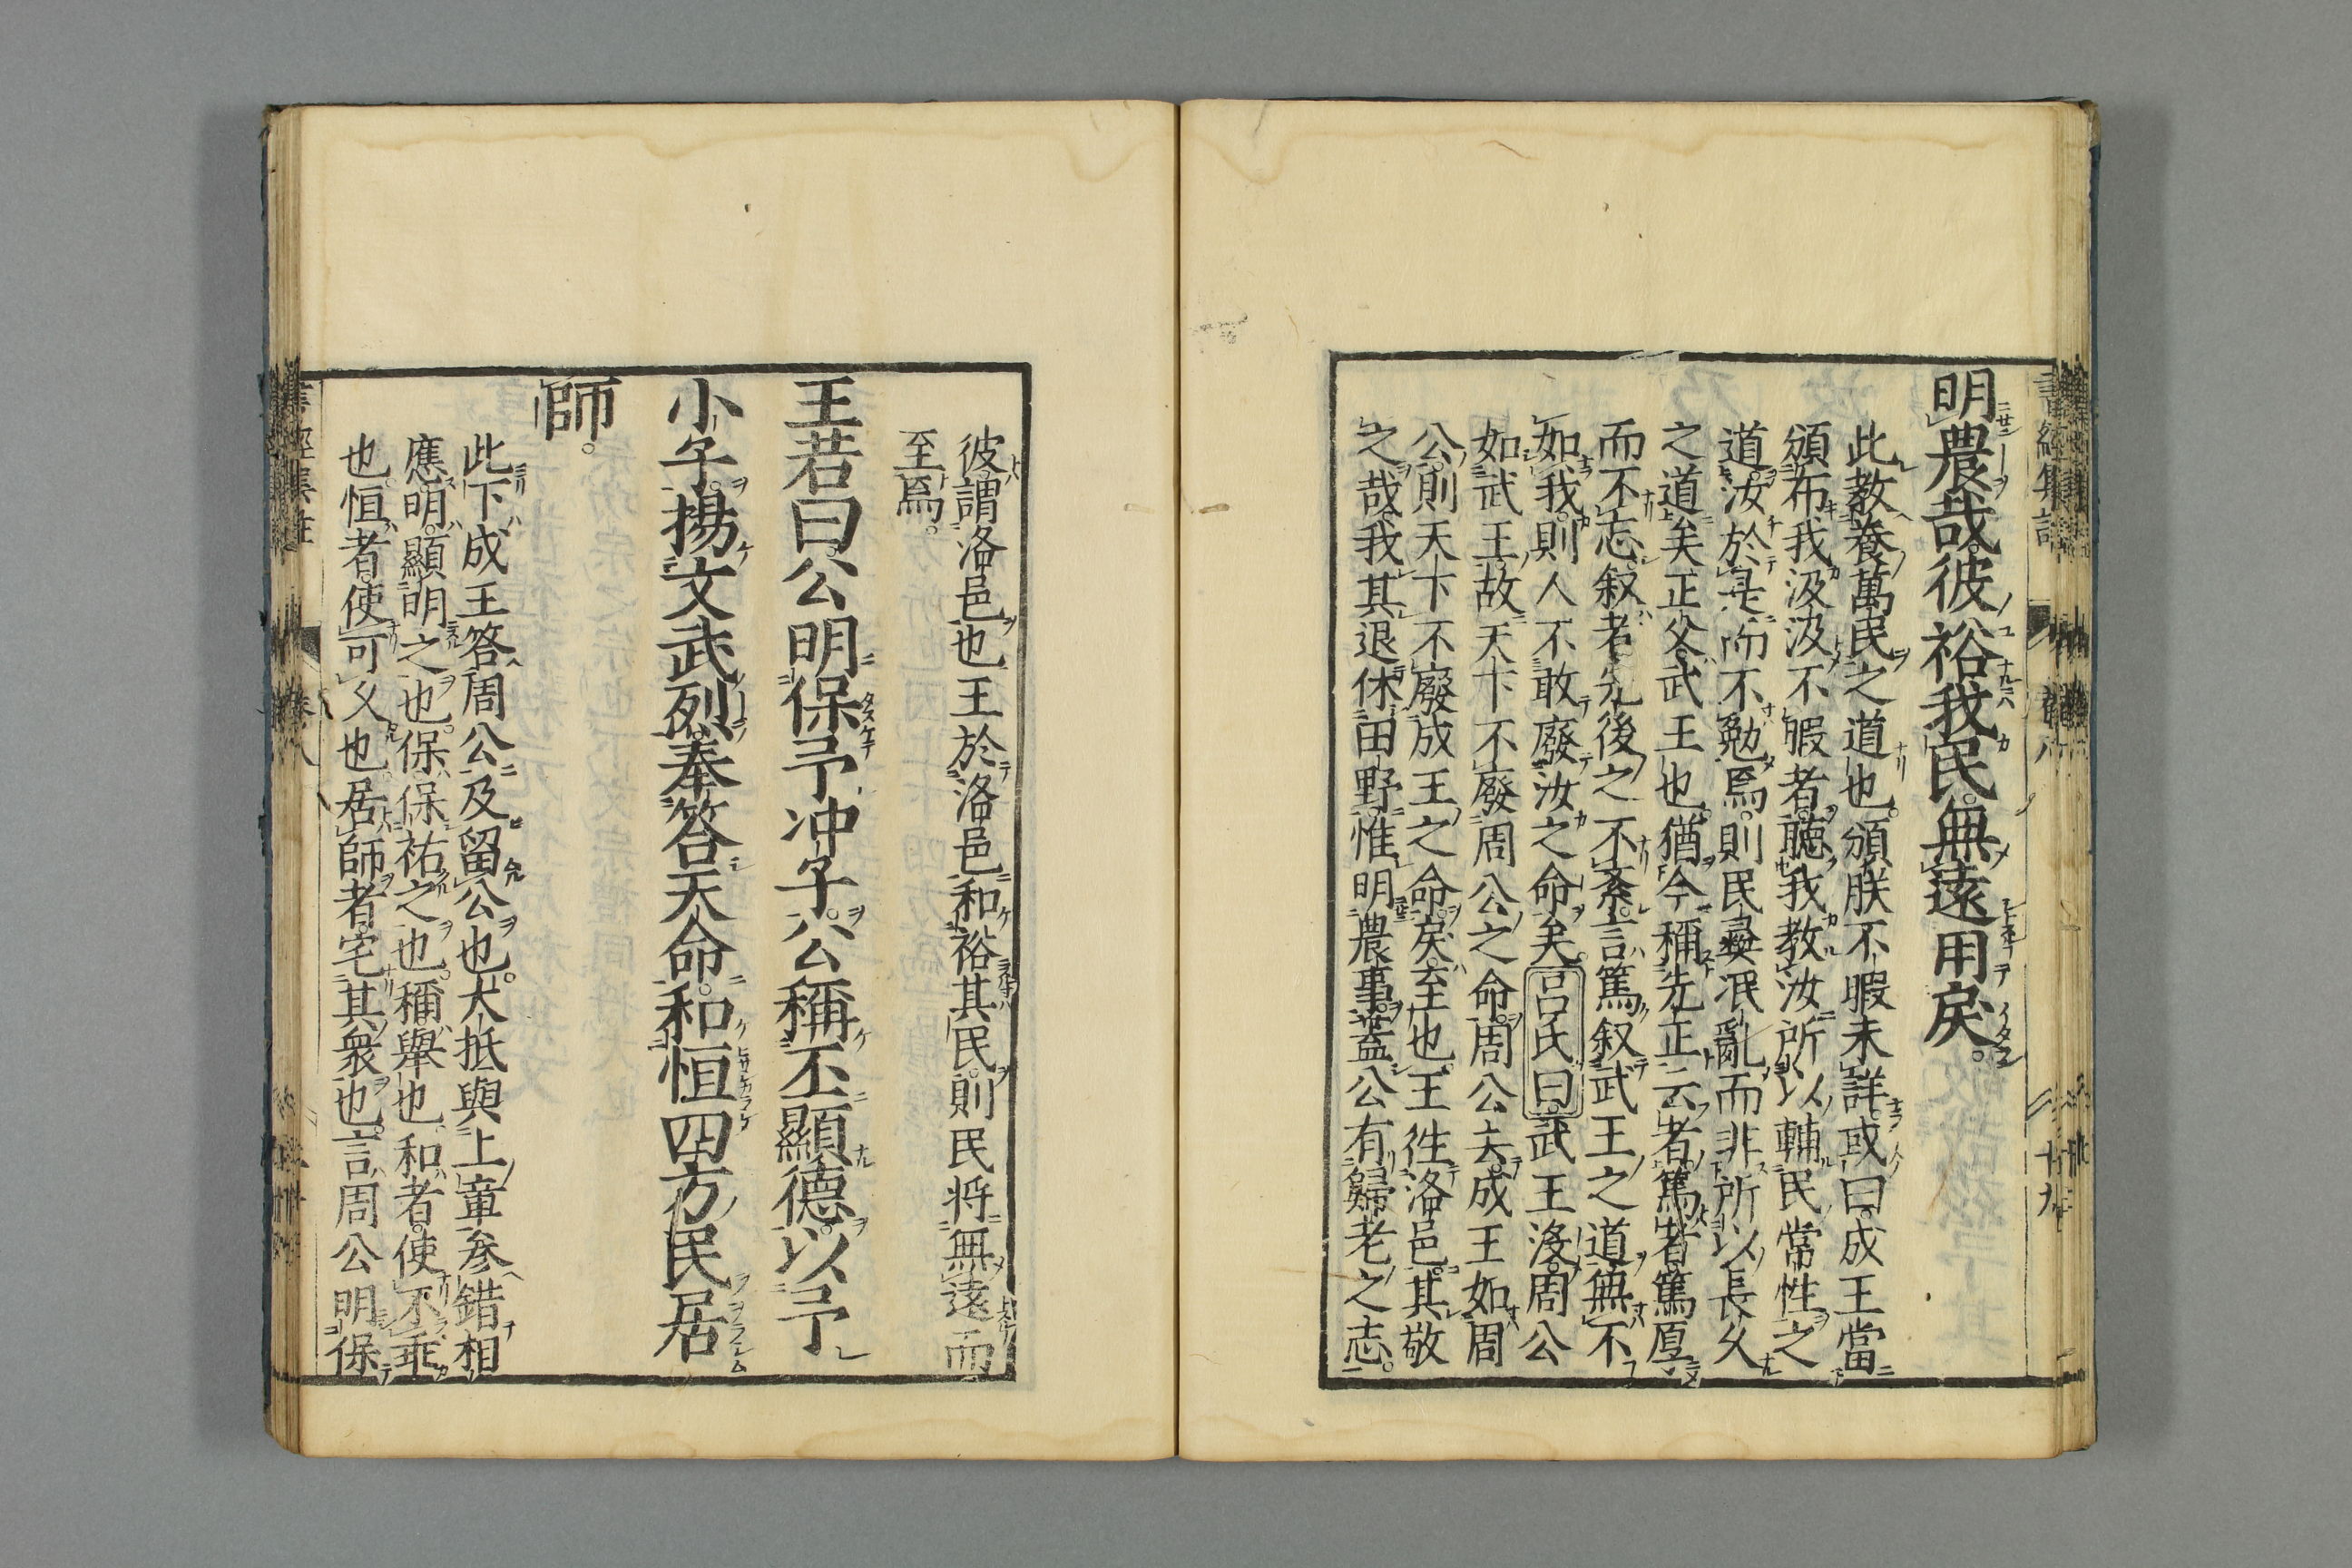 明農哉。彼裕我民。無遠用戾。
此教養萬民之道也。頒朕不暇未詳。或曰。成王當
頒布我汲汲不暇者。聽我教汝所以輔民常性之
道。汝於是而不勉焉。則民彝泯亂而非所以長久
之道矣。正父。武王也。猶今稱先正云者。篤者篤厚
而不忘。叙者。先後之不紊。言篤叙武王之道。無不
如我。則人不敢廢汝之命矣。呂氏曰。武王沒。周公
如武王。故天下不廢周公之命。周公去。成王如周
公。則天下不廢成王之命。戾。至也。王徃洛邑。其敬
之哉。我其退休田野。惟明農事。蓋公有歸老之志。
彼謂洛邑也。王於洛邑和裕其民。則民将無遠而
至焉。
王若曰。公明保予冲子。公稱丕顯德。以予
小子。揚文武烈。奉答天命。和恒四方民居
師。
此下成王答周公及留公也。大抵與上章参錯相
應。明。顯明之也。保。保祐之也。稱。舉也。和者。使不乖
也。恒者。使可久也。居師者。宅其衆也。言周公明保